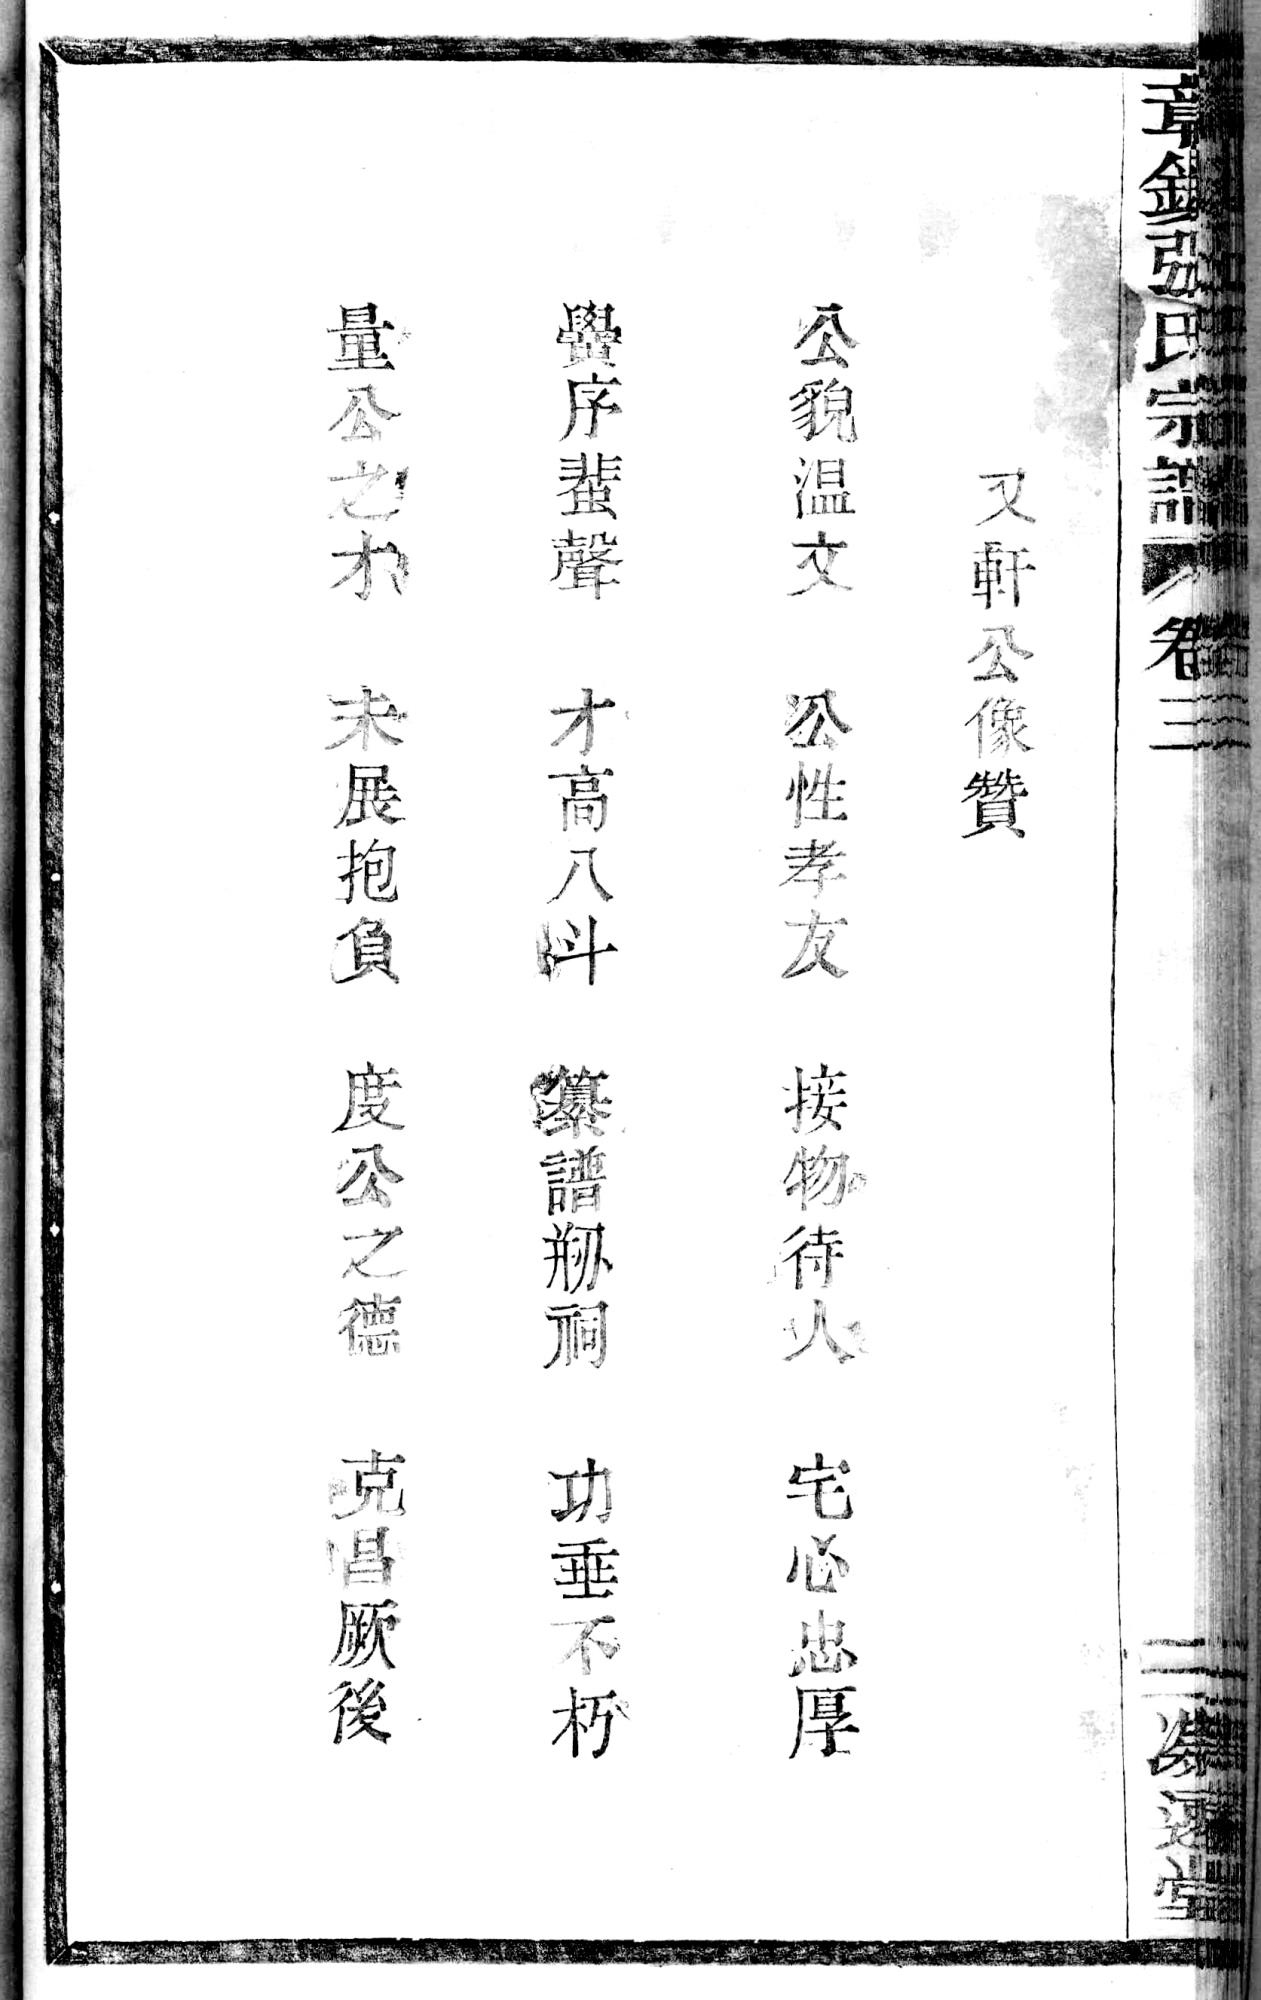 張氏宗譜 卷三
又軒公像贊
公貌温文 公性孝友 接物待人 宅心忠厚
黌序蜚聲 才高八斗 纂譜剏祠 功垂不朽
量公之才 未展抱負 度公之德 克昌厥後